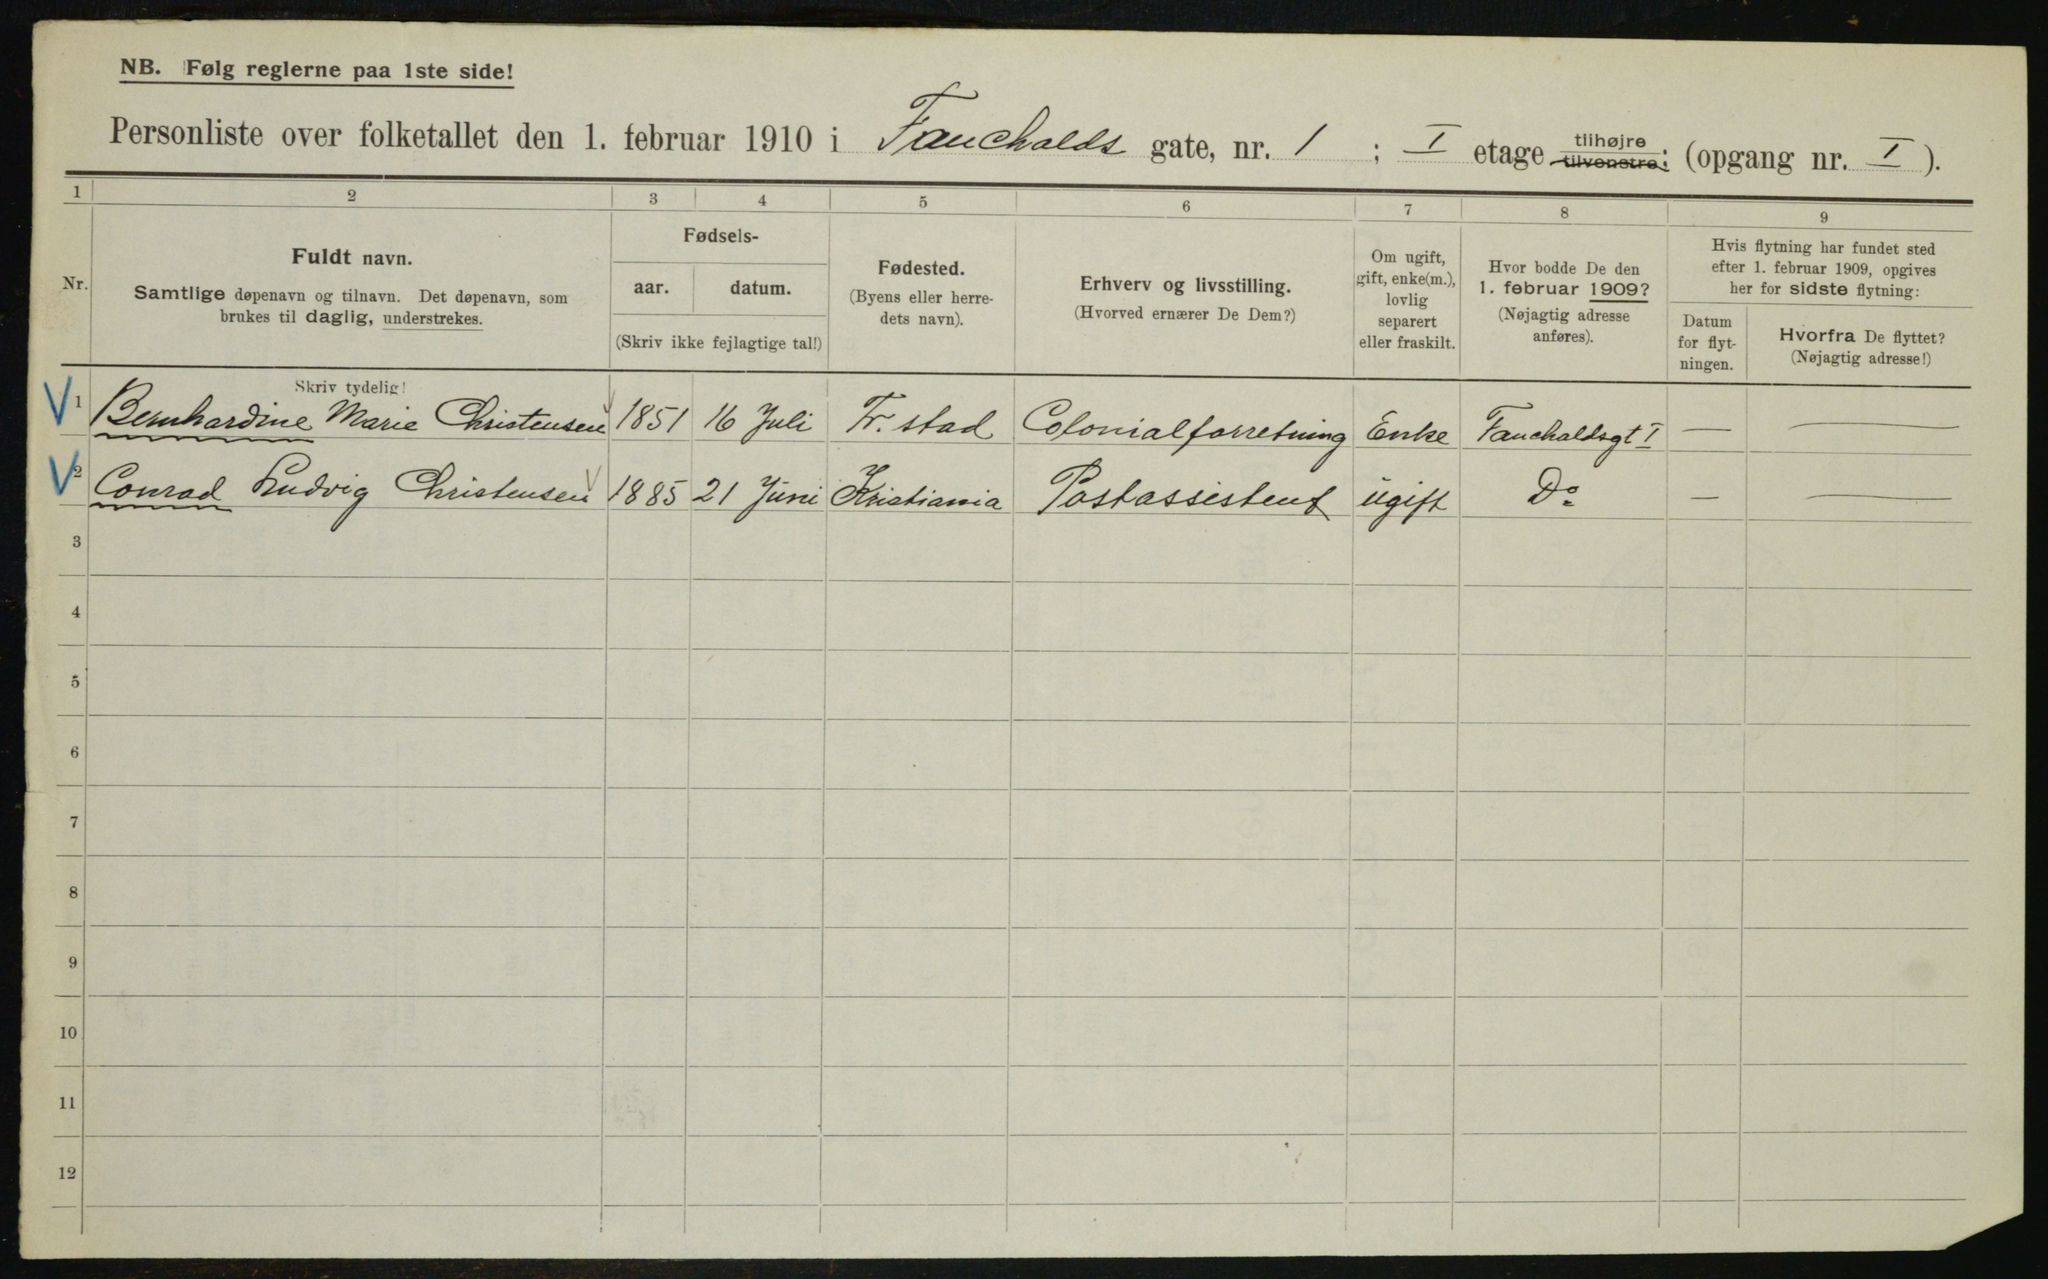 NB. Følg reglerne paa 1ste side!
Personliste over folketallet den 1. februar 1910 i Fauchalds gate, nr. 1 ; I etage tilhøjre tilvenstre; (opgang nr. I ).
1 2 3 4 5 6 7 8 9
Nr.
Fuldt navn.
Samtlige døpenavn og tilnavn. Det døpenavn, som
brukes til daglig, understrekes.
Fødsels-
aar. datum.
(Skriv ikke fejlagtige tal!)
Fødested.
(Byens eller herre-
dets navn).
Erhverv og livsstilling.
(Hvorved ernærer De Dem?)
Om ugift,
gift, enke(m.),
lovlig
separert
eller fraskilt.
Hvor bodde De den
1. februar 1909?
(Nøjagtig adresse
anføres).
Hvis flytning har fundet sted
efter 1. februar 1909, opgives
her for sidste flytning:
Datum
for flyt-
ningen.
Hvorfra De flyttet?
(Nøjagtig adresse!)
Skriv tydelig!
1 Bernhardine Marie Christensen 1851 16 Juli Fr. stad Colonialforretning Enke Fauchaldsgt I — —
2 Conrad Ludvig Christensen 1885 21 Juni Kristiania Postassistent ugift Do — —
3
4
5
6
7
8
9
10
11
12